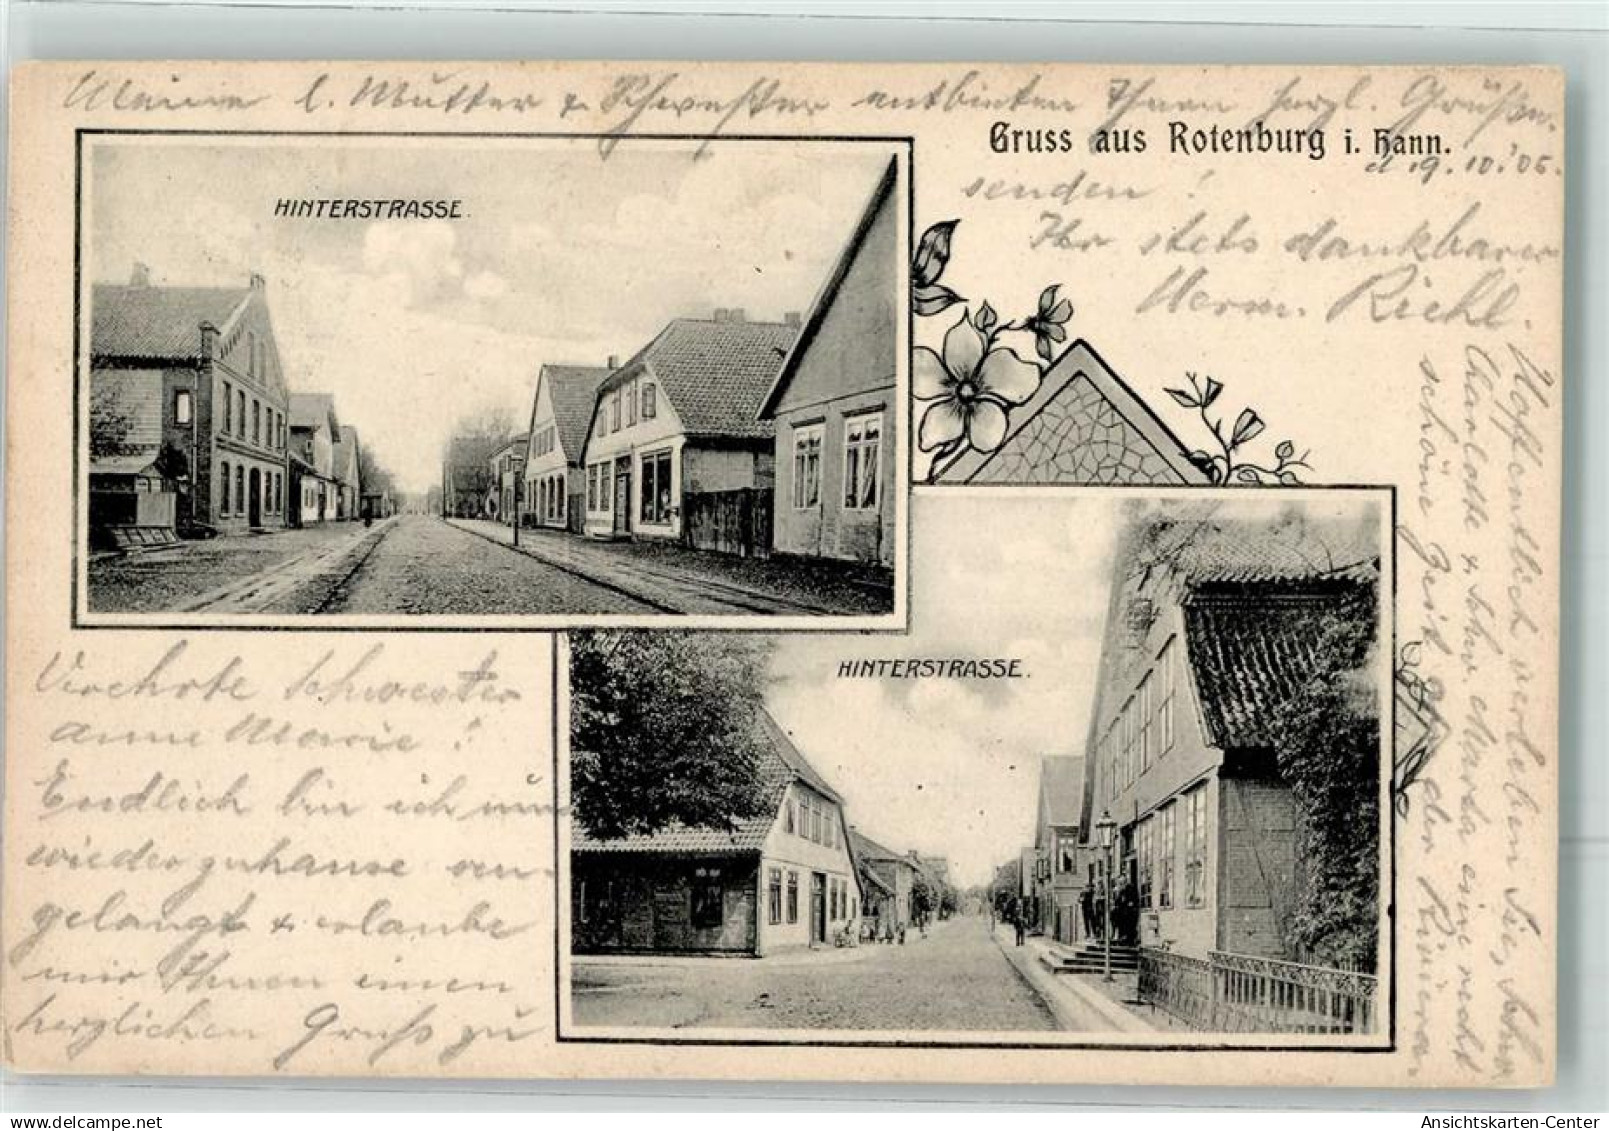 Meine l. Mutter & Schwester entbieten Ihnen herzl. Grüße.
Gruss aus Rotenburg i. Hann.
d 19. 10. 05.
HINTERSTRASSE.
HINTERSTRASSE.
Verehrte Schwester
Anne Marie!
Endlich bin ich nun
wieder zuhause an-
gelangt & erlaube
mir Ihnen einen
herzlichen Gruß zu
senden!
Ihr stets dankbarer
Herm. Riehl.
Hoffentlich verleben Sie, Schw.
Charlotte & Schw. Martha eine recht
schöne Zeit an der Riviera.
Ansichtskarten-Center